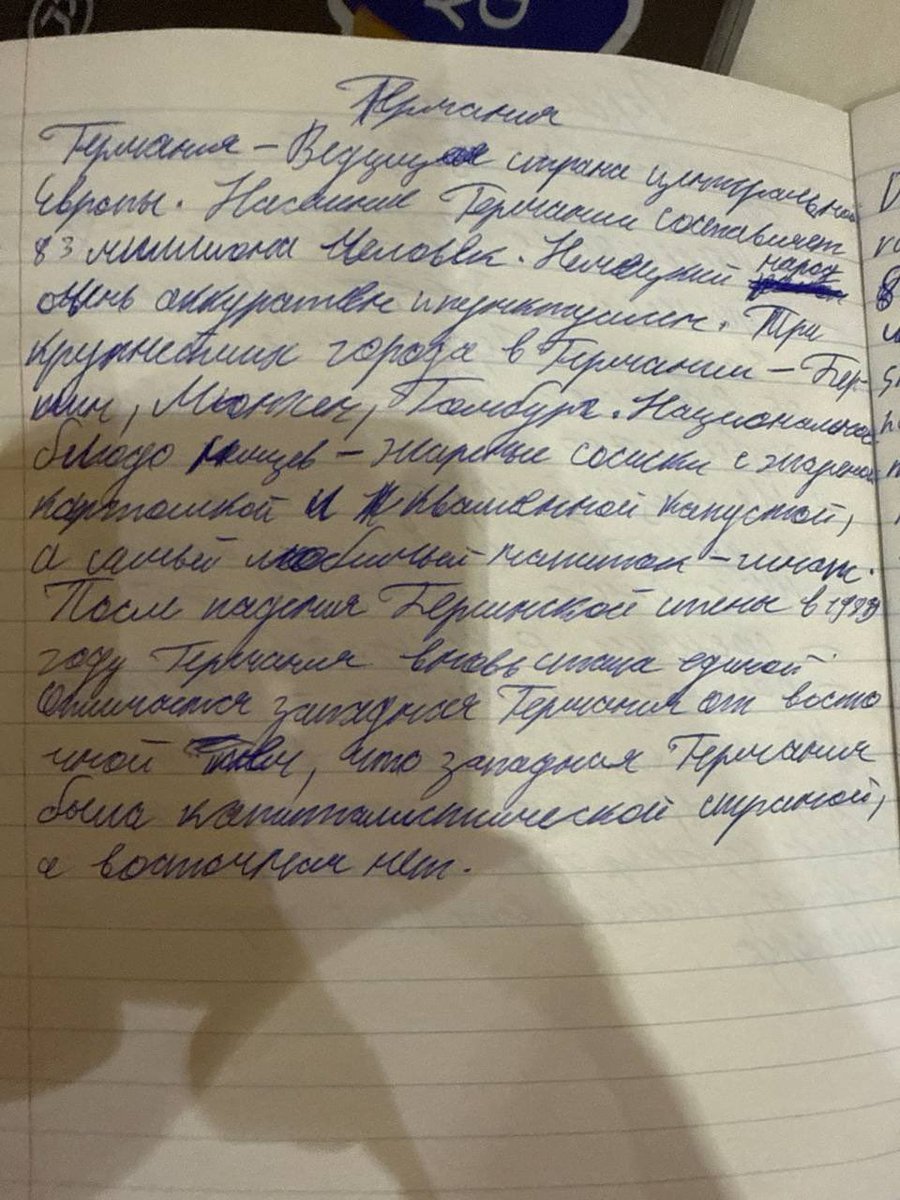 Германия
Германия – Ведущая страна центральной
Европы. Население Германии составляет
83 миллиона человек. Немецкий народ
очень аккуратен и пунктуален. Три
крупнейших города в Германии – Бер-
лин, Мюнхен, Гамбург. Национальное
блюдо немцев – жареные сосиски с жареной
картошкой и квашенной капустой,
а самый любимый напиток – шнапс.
После падения Берлинской стены в 1989
году Германия вновь стала единой.
Отличается западная Германия от восто
чной тем, что западная Германия
была капиталистической страной,
а восточная нет.